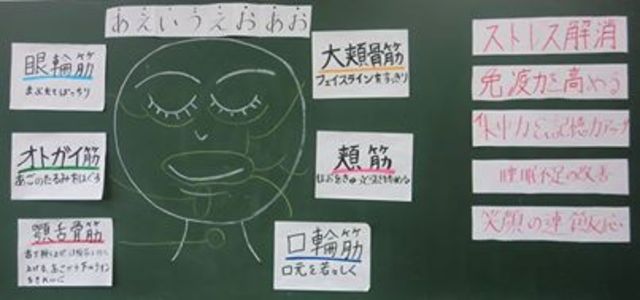 あえいうえおあお
眼輪筋
まぶたぱっちり
オトガイ筋
あごのたるみをほぐす
顎舌骨筋
大頬骨筋
フェイスラインをすっきり
頬筋
口輪筋
口元を若々しく
ストレス解消
免疫力を高める
集中力と記憶力アップ
睡眠不足の改善
笑顔の連鎖反応